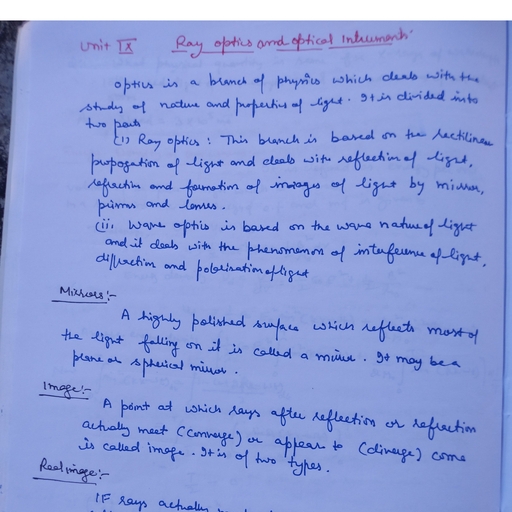 Unit IX Ray optics and optical Intruments
optics is a branch of physics which deals with the
study of nature and properties of light. It is divided into
two parts
(i) Ray optics : This branch is based on the rectilinear
propogation of light and deals with reflection of light,
refraction and formation of images of light by mirror,
prisms and lenses.
(ii) Wave optis is based on the wave nature of light
and it deals with the phenomenon of interference of light,
diffraction and polarisation of light
Mirrors:-
A highly polished surface which reflects most of
the light falling on it is called a mirror. It may be a
plane or spherical mirror.
Image:-
A point at which rays after reflection or refraction
actually meet (converge) or appear to (diverge) come
is called image. It is of two types.
Real image:-
IF rays actually